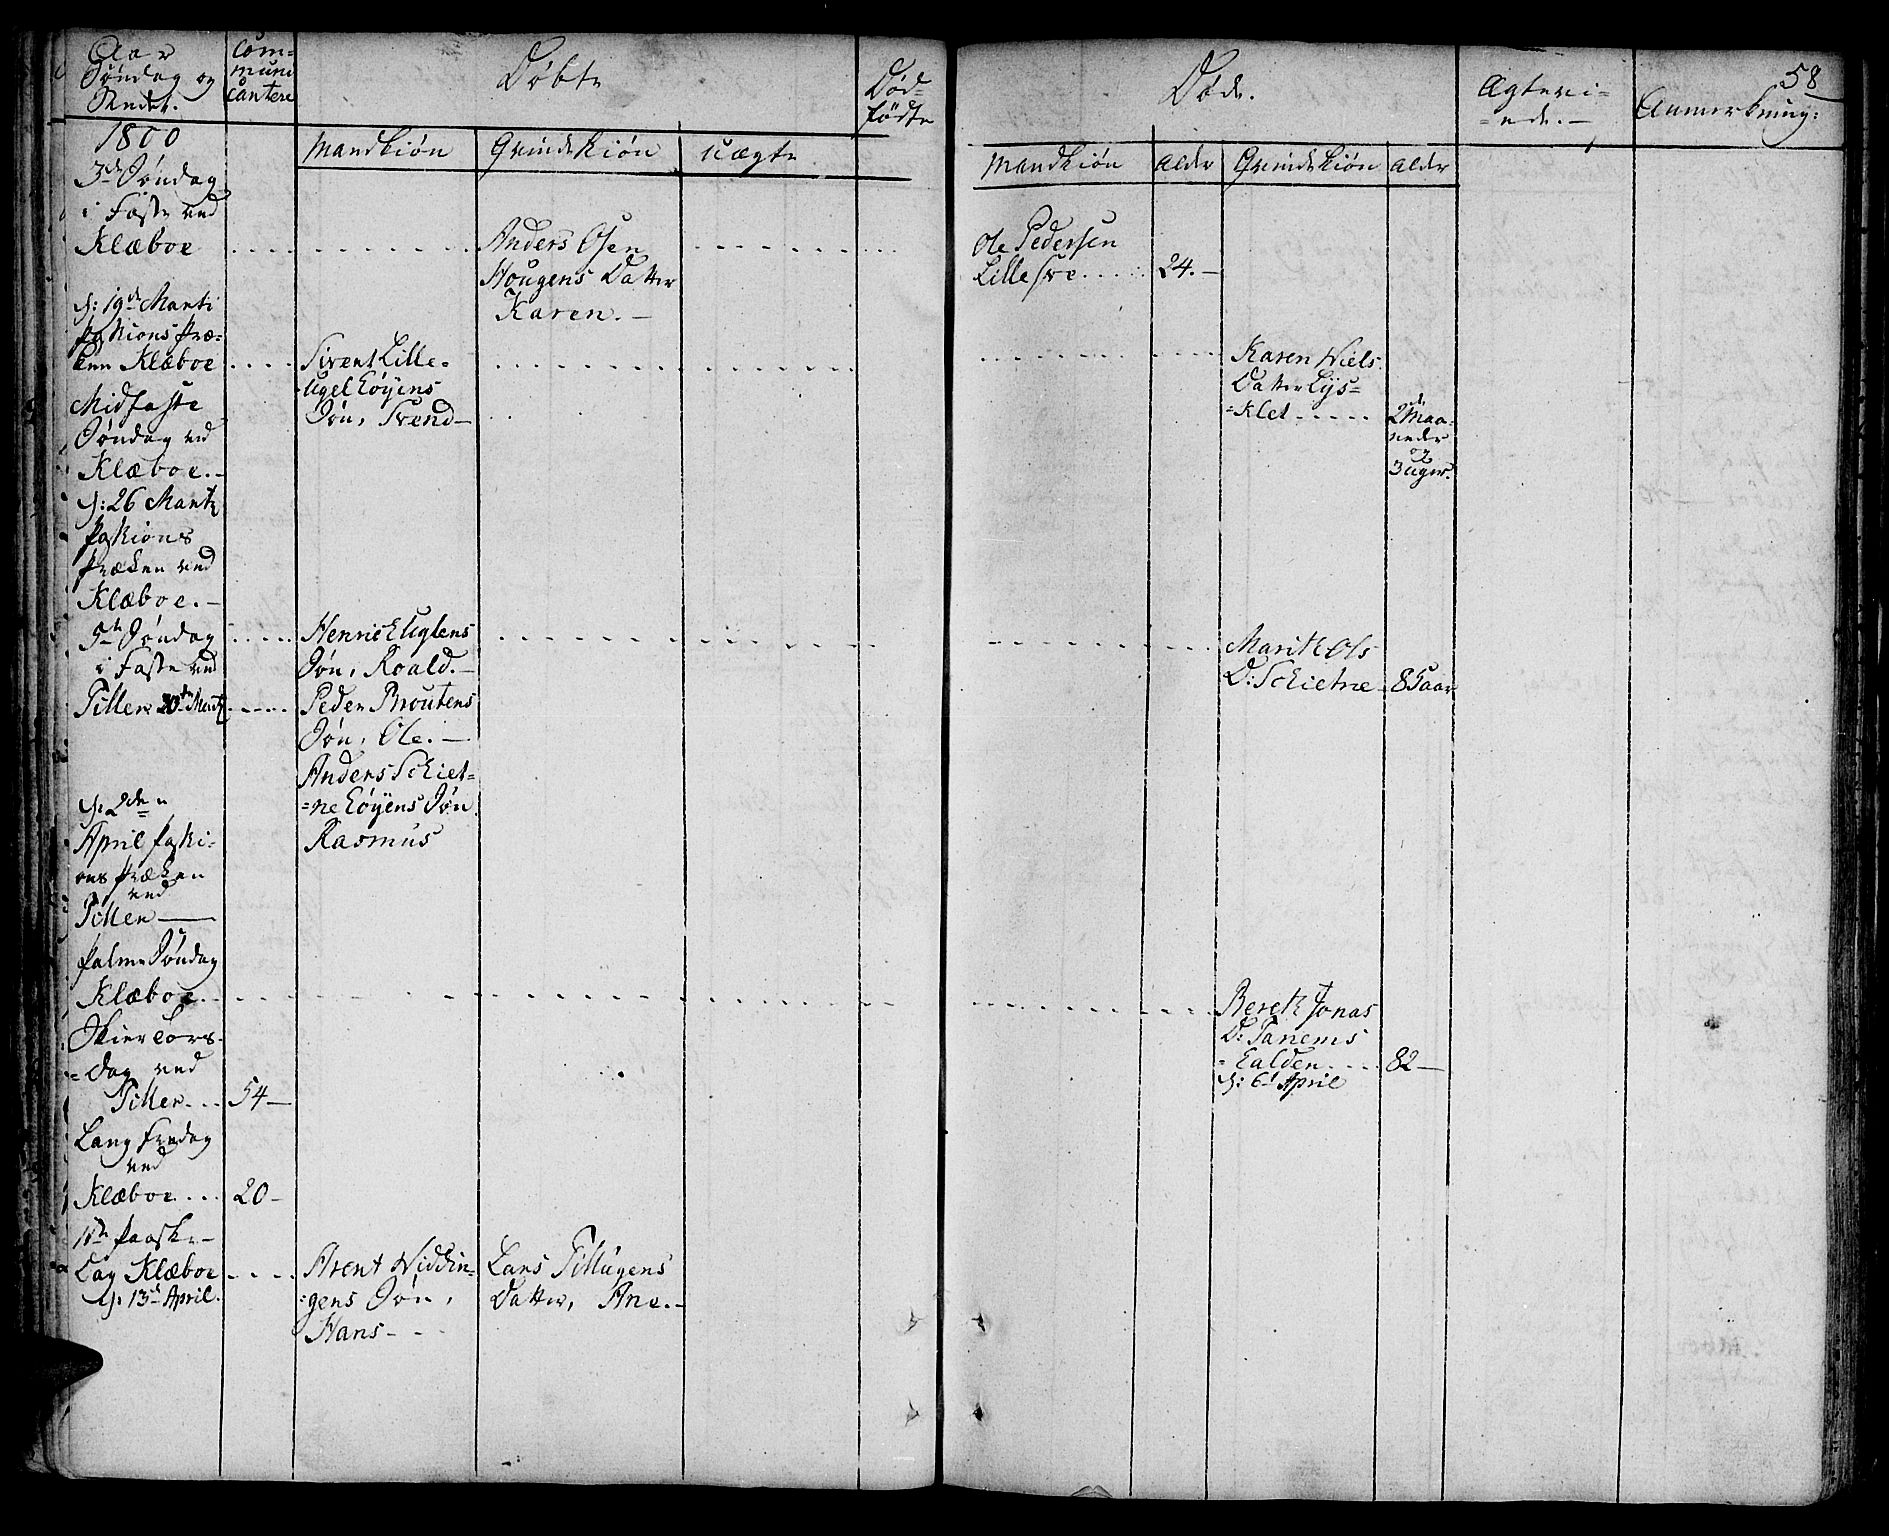 Aar
Søndag og
Stedet.
Com=
muni
cantere
Døbte
Død=
fødte
Døde.
Ægtevi=
=ede.
58
Anmerkning:
Mandkiøn
Qvindekiøn
Uægte
Mandkiøn
Alder
Qvindekiøn
Alder
1800
3de Søndag
i Faste ved
Klæboe
Anders Osen
Hougens Datter
Karen.
Ole Pedersen
Lille
24.
d: 19de Marti
Paskions Præ=
ken Klæboe
Sivert Lille=
Ugel Eøyens
Søn, Svend
Karen Niels
Datter Lys=
=klet
2 Maa=
neder
og
3 uger.
Midfaste
Søndag ved
Klæboe.
d: 26 Marti
Paskions
Præken ved
Klæboe.
5te Søndag
i Faste ved
Tiller 30te Marti
Henric Uglens
Søn, Roald.
Peder Broutens
Søn, Ole.
Anders Schiet=
=ne Eøyens Søn
Rasmus
Marit Ols
D: Schietne
85 aar
d: 2den
April Paski=
ons Præken
ved
Tiller
Palme Søndag
Klæboe.
Beret Jonas
D: Tanems
=Ealden
d: 6t April
82
Skiertors=
=dag ved
Tiller
54
Lang Fredag
ved
Klæboe
20
1ste Paaske=
Dag Klæboe
d: 13d April.
Arent Widdin=
=gens Søn,
Hans
Lars Tillugens
Datter, Ane.